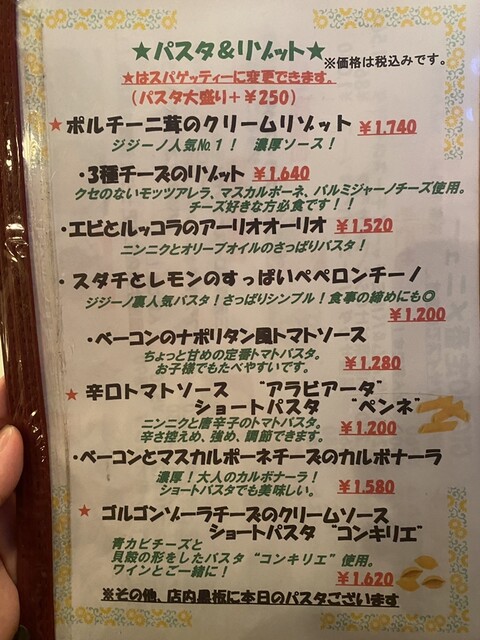 ★パスタ&リゾット★
※価格は税込みです。
★はスパゲッティーに変更できます。
（パスタ大盛り＋￥250）
★ポルチーニ茸のクリームリゾット ￥1,740
ジジーノ人気№1！ 濃厚ソース！
・3種チーズのリゾット ￥1,640
クセのないモッツアレラ、マスカルポーネ、パルミジャーノチーズ使用。
チーズ好きな方必食です！！
・エビとルッコラのアーリオオーリオ ￥1,520
ニンニクとオリーブオイルのさっぱりパスタ！
・スダチとレモンのすっぱいペペロンチーノ
ジジーノ裏人気パスタ！さっぱりシンプル！食事の締めにも◎
￥1,200
・ベーコンのナポリタン風トマトソース
ちょっと甘めの定番トマトパスタ。
お子様でもたべやすいです。 ￥1,280
★辛口トマトソース “アラビアータ”
ショートパスタ “ペンネ”
ニンニクと唐辛子のトマトパスタ。
辛さ控えめ、強め、調節できます。 ￥1,200
・ベーコンとマスカルポーネチーズのカルボナーラ
濃厚！大人のカルボナーラ！
ショートパスタでも美味しい。 ￥1,580
★ゴルゴンゾーラチーズのクリームソース
ショートパスタ “コンキリエ”
青カビチーズと
貝殻の形をしたパスタ“コンキリエ”使用。
ワインとご一緒に！ ￥1,620
※その他、店内黒板に本日のパスタございます